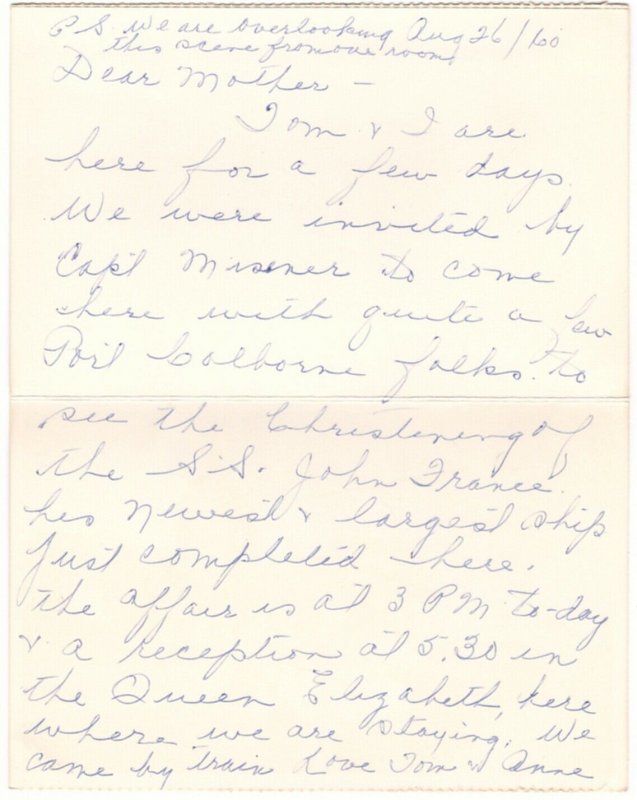 P.S. We are overlooking Aug 26/60
this scene from our room.
Dear Mother –
Tom & I are
here for a few days.
We were invited by
Capt Misener to come
here with quite a few
Port Colborne folks. to
see the Christening of
the S.S. John France.
his newest & largest ship
just completed here.
The affair is at 3 PM to-day
& a reception at 5.30 in
the Queen Elizabeth, here
where we are staying. We
came by train Love Tom & Anne